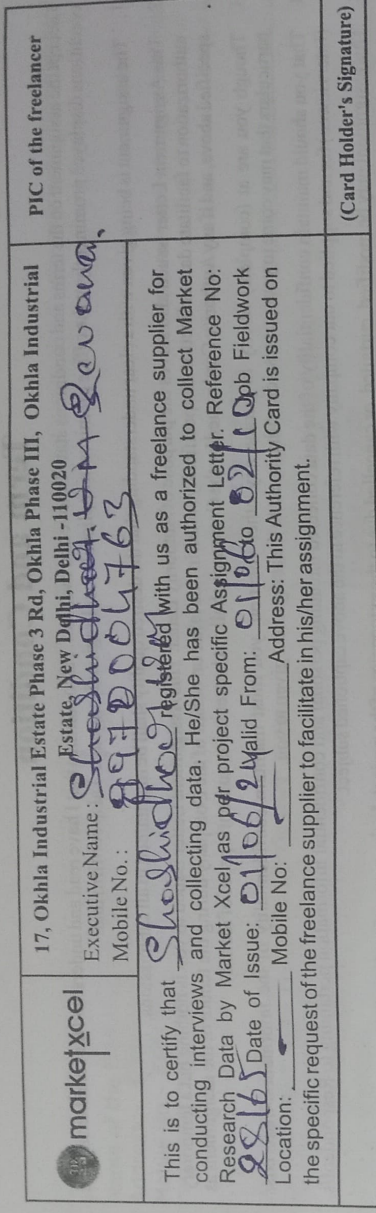 marketxcel
17, Okhla Industrial Estate Phase 3 Rd, Okhla Phase III, Okhla Industrial
Estate, New Delhi, Delhi -110020
PIC of the freelancer
Executive Name : Shashidhar. H M Revanna,
Mobile No.: 8970004763
This is to certify that Shashidhar registered with us as a freelance supplier for
conducting interviews and collecting data. He/She has been authorized to collect Market
Research Data by Market Xcel as per project specific Assignment Letter. Reference No:
28165 Date of Issue: 01/06/24 Valid From: 01/06 to Opb Fieldwork
Location: Mobile No: Address: This Authority Card is issued on
the specific request of the freelance supplier to facilitate in his/her assignment.
(Card Holder's Signature)